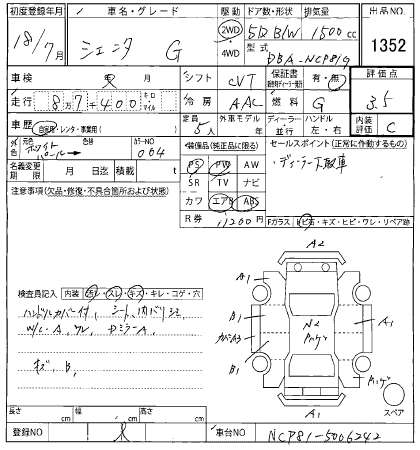 初度登録年月 車名・グレード 駆動 ドア数・形状 排気量 出品NO.
18/7月 シエンタ G 2WD 4WD 5D B/W 1500cc 1352
型式 DBA-NCP81G
車検 シフト CVT 保証書 有・無 評価点
走行 8万7千400 キロ マイル 冷房 AAC 燃料 G 3.5
車歴 自家用・レンタ・事業用( ) 定員 5人 外車モデル 年 ディーラー・並行 ハンドル 左・右 内装評価 C
外色 元色 ホワイトパール 色替 カラーNO 064 装備品(純正品に限る) セールスポイント(正常に作動するもの)
名義変更期限 月 日迄 積載 t PS PW AW ・ディーラー下取車
注意事項(欠品・修復・不具合箇所および状態) SR TV ナビ
カワ エアB ABS
R券 円 Fガラス トビ石・キズ・ヒビ・ワレ・リペア跡
A2
A1 A1
検査員記入 内装 汚レ・スレ・キズ・キレ・コゲ・穴
ハンドルカバー付 シート、内バリシミ
W/L-A、ワレ、DミラーA
キズ、B、
B1
A3
B1
A2
A1
A1
スペア
長さ cm 幅 cm 高さ cm
登録NO 車台NO NCP81-5006242